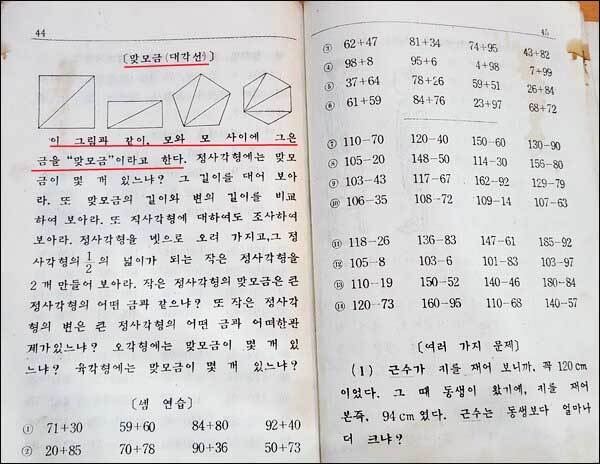 44
[맞모금(대각선)]
이 그림과 같이, 모와 모 사이에 그은
금을 "맞모금"이라고 한다. 정사각형에는 맞모
금이 몇 개 있느냐? 그 길이를 대어 보아
라. 또 맞모금의 길이와 변의 길이를 비교
하여 보아라. 또 직사각형에 대하여도 조사하여
보아라. 정사각형을 넷으로 오려 가지고, 그 정
사각형의 1/2의 넓이가 되는 작은 정사각형을
2 개 만들어 보아라. 작은 정사각형의 맞모금은 큰
정사각형의 어떤 금과 같으냐? 또 작은 정사각
형의 변은 큰 정사각형의 어떤 금과 어떠한관
계가있느냐? 오각형에는 맞모금이 몇 개 있
느냐? 육각형에는 맞모금이 몇 개 있느냐?
[셈 연습]
① 71+30 59+60 84+80 92+40
② 20+85 70+78 90+36 50+73
45
③ 62+47 81+34 74+95 43+82
④ 98+8 95+6 4+98 7+99
⑤ 37+64 78+26 59+51 26+84
⑥ 61+59 84+76 23+97 68+72
⑦ 110-70 120-40 150-60 130-90
⑧ 105-20 148-50 114-30 156-80
⑨ 103-43 117-67 162-92 129-79
⑩ 106-35 108-72 109-14 107-63
⑪ 118-26 136-83 147-61 185-92
⑫ 105-8 103-6 101-83 103-97
⑬ 110-19 150-52 140-46 180-84
⑭ 120-73 160-95 110-68 140-57
[여러 가지 문제]
(1) 근수가 키를 재어 보니까, 꼭 120cm
이었다. 그 때 동생이 왔기에, 키를 재어
본즉, 94cm 였다. 근수는 동생보다 얼마나
더 크냐?